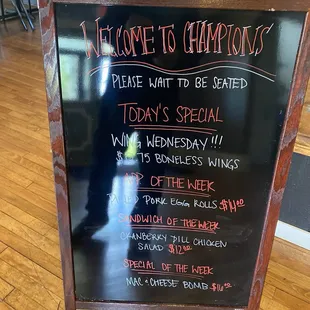 WELCOME TO CHAMPIONS
PLEASE WAIT TO BE SEATED
TODAY'S SPECIAL
WING WEDNESDAY !!!
75 BONELESS WINGS
APP OF THE WEEK
PORK EGG ROLLS $14.00
SANDWICH OF THE WEEK
CRANBERRY DILL CHICKEN
SALAD $12.00
SPECIAL OF THE WEEK
MAC + CHEESE BOMB $16.00